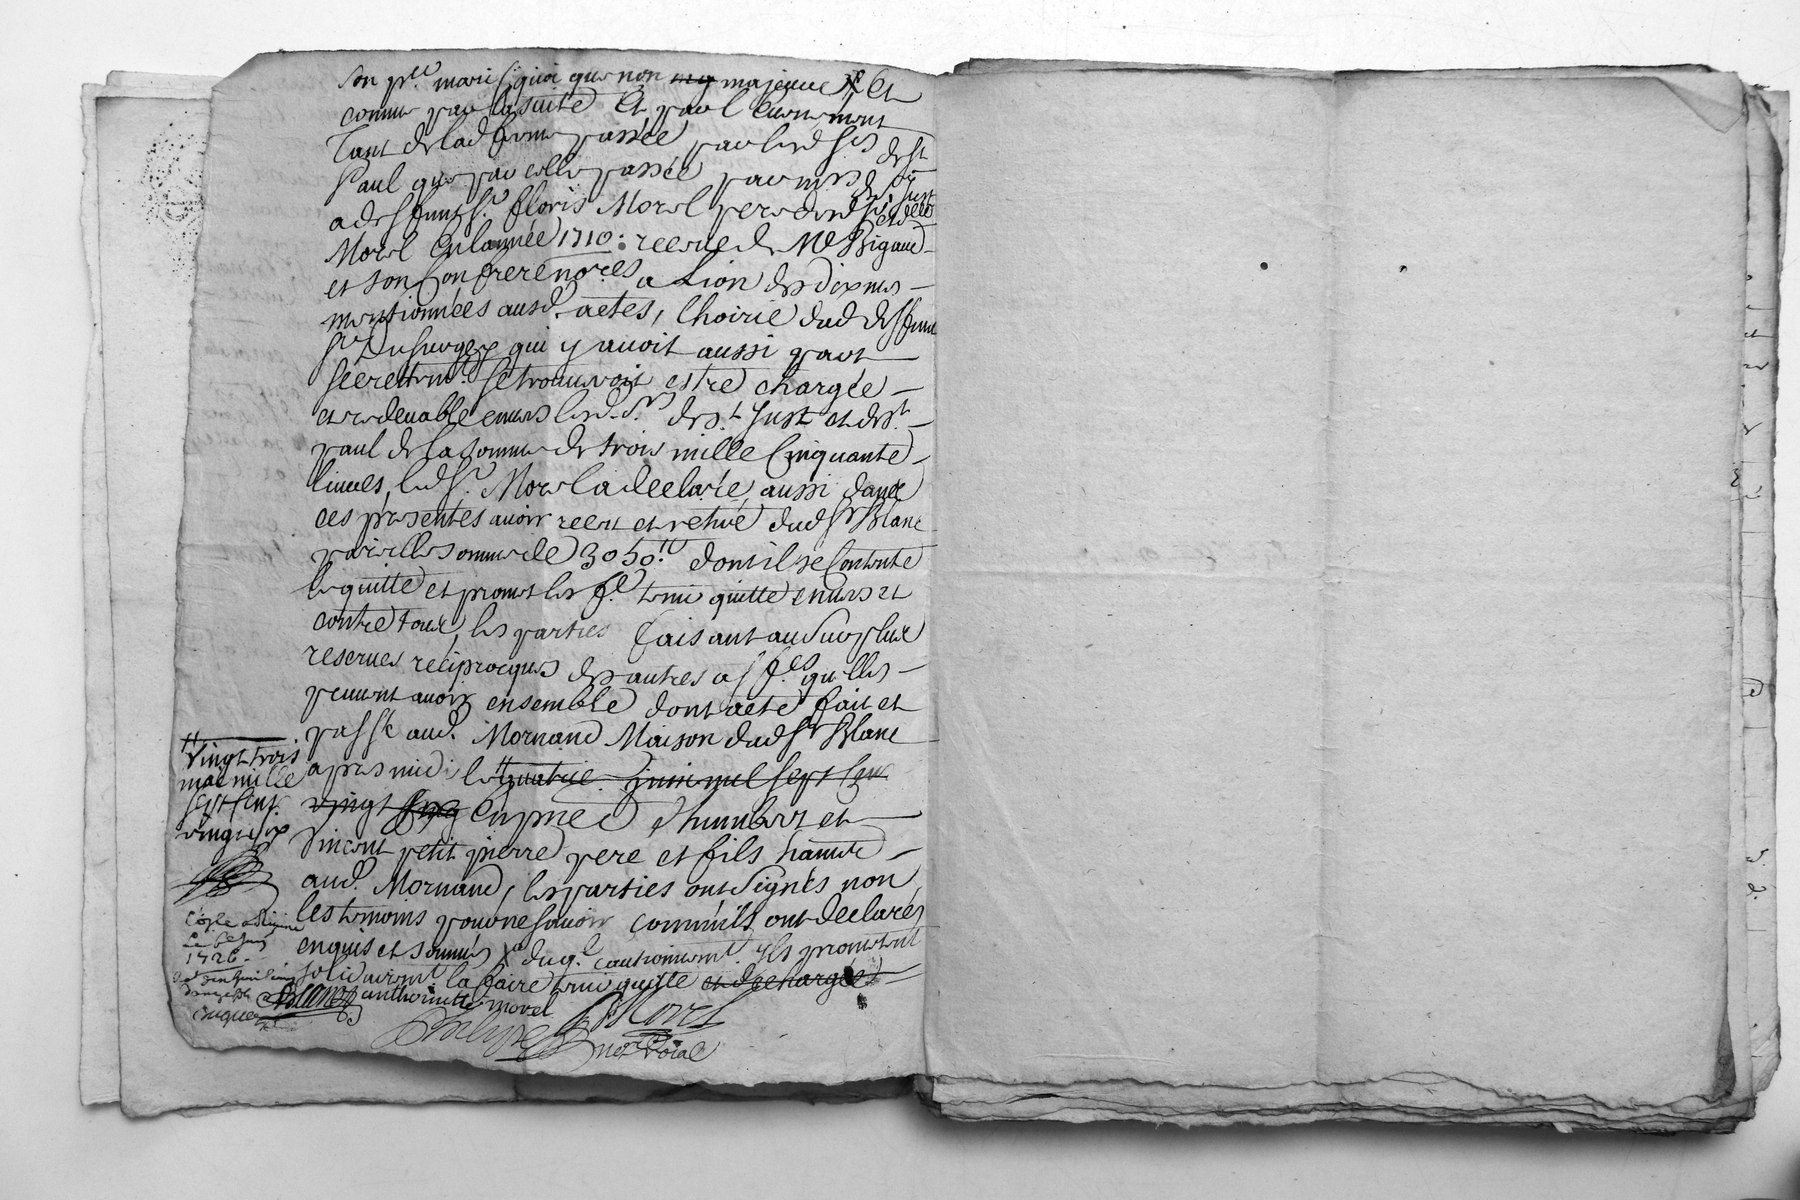 son p.nt mari quoi que non majeure X et
comme par la suite et par l'evenement
tant de lad. ferme passée par lesd. srs de st
Paul que par celle passée par mrs de st Just
a deffunt sr. floris Morel pere dud. sr. et delle
Morel en l'année 1710: receue de Me Rigaud
et son Confrere no.res a Lion des dixmes
mentionnées ausd. actes, l'hoirie dud. deffunt
sr. qui y avoit aussi part
secrettem.t se trouvoit estre chargée
et redevable envers lesd. srs de st. Just et de st.
paul de la somme de trois mille Cinquante
livres, led. sr. Morel a declaré aussi dans
ces presentes avoir receu et retiré dud. sr Blanc
pareille somme de 3050.tt dont il se Contente
le quitte et promet le f.e tenir quitte envers et
contre tous, les parties faisant au surplus
reserves reciproques des autres aff.es qu'elles
peuvent avoir ensemble dont acte fait et
passé aud. Mornand Maison dud. sr Blanc
apres midi le quatrie. juin mil sept cens
vingt six en pnce d'humbert et
Vincent petit pierre pere et fils habite
aud. Mornand, les parties ont signés non
les temoins pour ne savoir comm'ils ont declarés
enquis et sommés X duq.l cautionnem.t ils promettent
solidairem.t la faire tenir quitte et decharger
vingt trois
mai mille
sept cent
vingt six
1726
Blanc anthoinette morel
Morel
no.re Roial